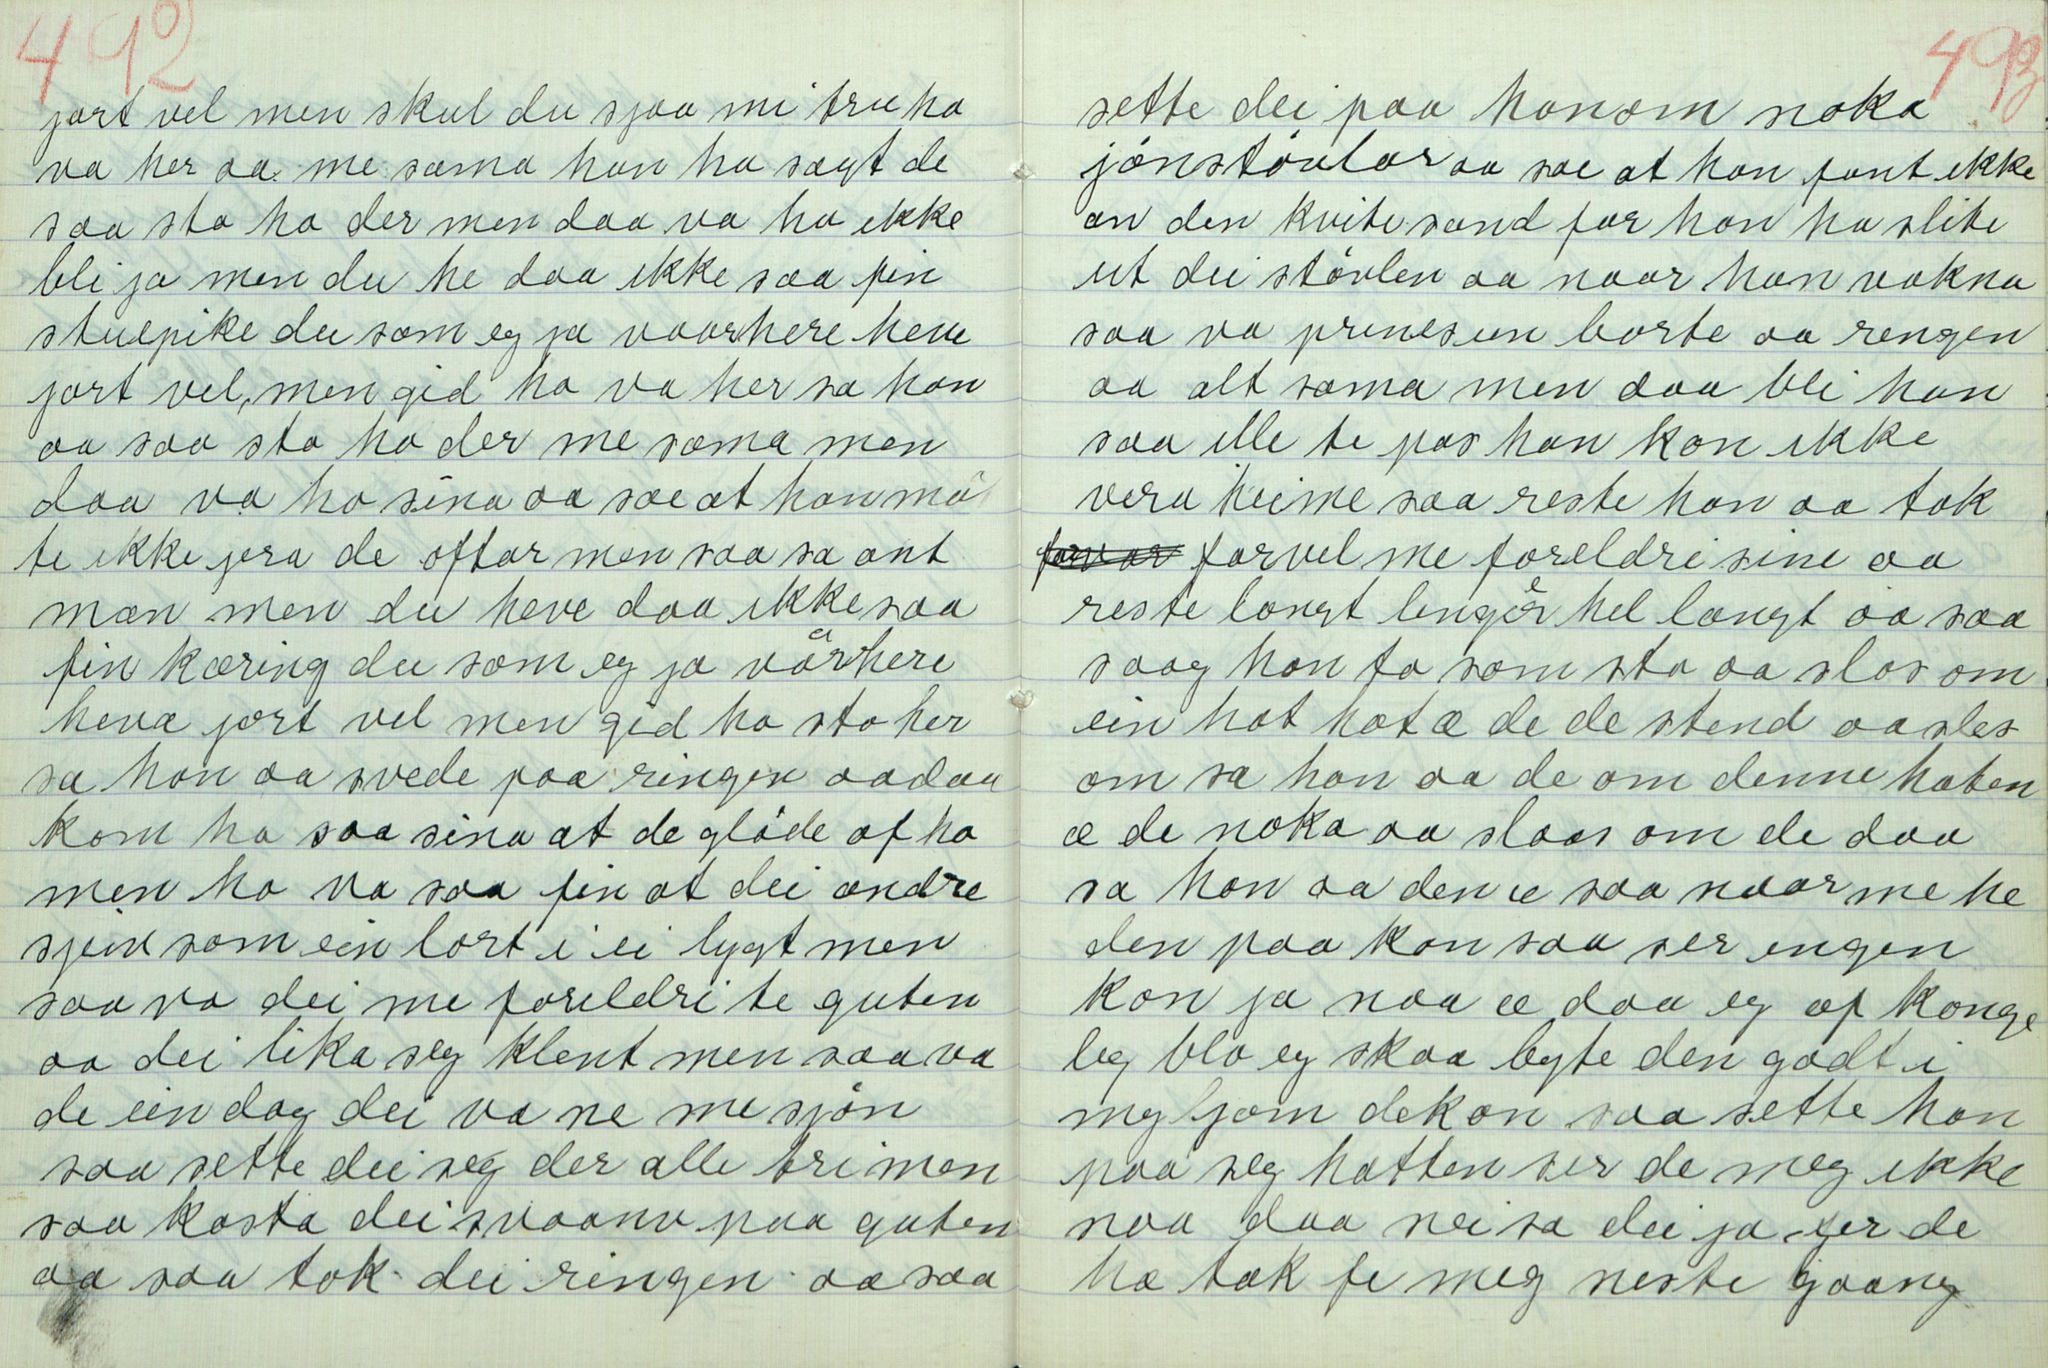 492
jort vel men skul du sjaa mi tru ho
va her aa me sama han ha sagt de
saa sto ho der men daa va ho ikke
bli ja men du he daa ikke saa fin
stuepike du som eg ja vaarhere heve
jort vel, men gid ho va her sa han
aa saa sto ho der me sama men
daa va ho sina aa sae at han må
te ikke jera de oftar men saa sa ant
man men du heve daa ikke saa
fin kæring du som eg ja vårhere
heve jort vel men gid ho sto her
sa han aa svede paa ringen aa daa
kom ho saa sina at de glöde af ho
men ho va saa fin at dei andre
sjein som ein lort i ei lygt men
saa va dei me foreldri te guten
aa dei lika seg klent men saa va
de ein dag dei va ne me sjön
saa sette dei seg der alle tri men
saa kasta dei svaanv paa guten
aa saa tok dei ringen aa saa
493
sette dei paa honom noka
jönstövlar aa sae at han fant ikke
an den kvite sand for han ha slite
ut dei stövlen aa naar han vakna
saa va prinsesun borte aa rengen
aa alt sama men daa bli han
saa ille te pas han kan ikke
vera heime saa reste han aa tok
farvel me foreldri sine aa
reste langt lengår hel langt aa saa
saag han to som sto aa slos om
ein hat hat æ de de stend aa sles
om sa han aa de om denne haten
æ de noka aa slaas om de daa
sa han aa den æ saa naar me he
den paa kan saa ser engen
kan ja naa æ daa eg af konge
leg blo eg skaa byte den godt i
myljom dekan saa sette han
paa seg hatten ser de meg ikke
naa daa nei sa dei ja fer de
ha tak fe meg neste gaang